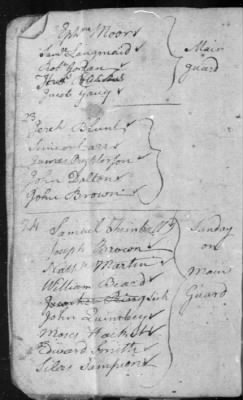 Ephm Moors
Saml Langmaid
Robt Jordan
Jacob Garey
Main
Guard
23
Jereh Blunt
Simeon Carr
James
John Dalton
John Brown
24
Samuel
Joseph Brown
Nathl Martin
William Beard
King sick
John Quimbey
Moses Hackett
Edward Smith
Silas Sampson
Sunday
on
Main
Guard